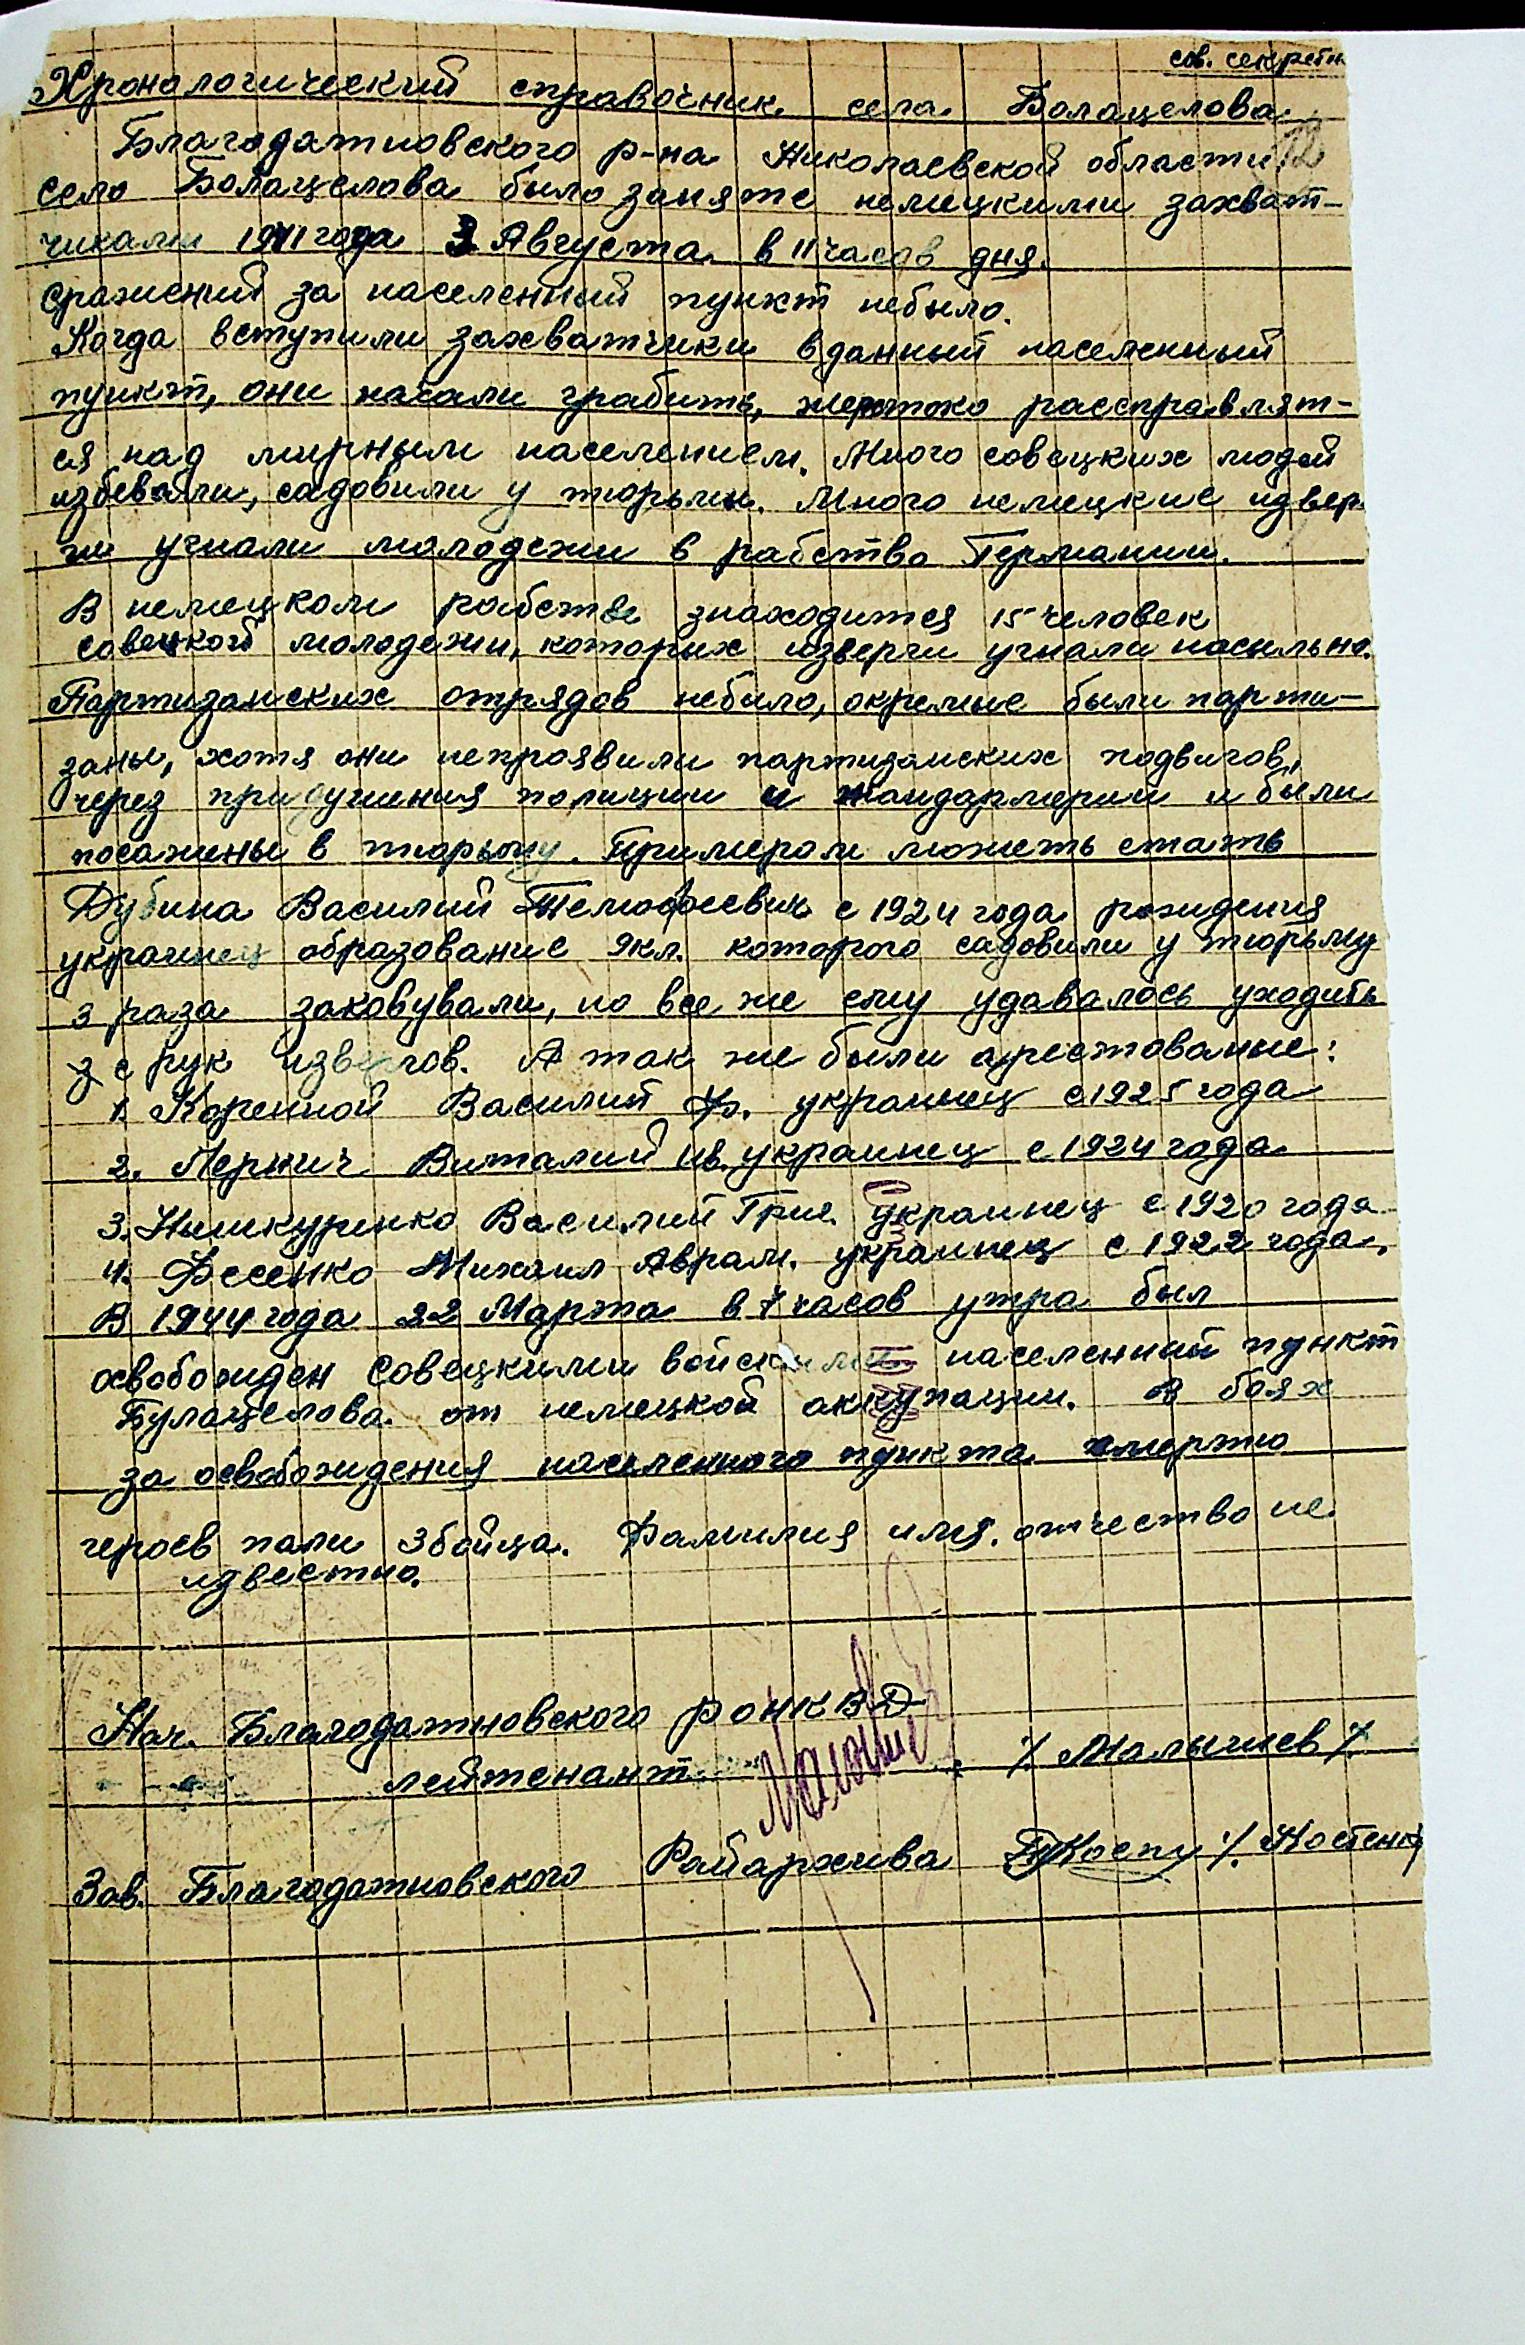 сов. секретн
Хронологический справочник села Болацелова
12
Благодатновского р-на Николаевской области
село Болацелова было заняте немецкими захват-
чиками 1941 года 3 Августа в 11 часов дня.
сражений за населенный пункт небыло.
Когда вступили захватчики вданный населенный
пункт, они начали грабить, жестоко расправлят-
ся над мирным населением. Много совецких людей
избевали, садовили у тюрьмы. Много немецкие извер-
ги угнали молодежи в рабство Германии.
В немецком рабстве знаходится 15 человек
совецкой молодежи, которых изверги угнали насильно.
Партизанских отрядов небыло, окремые были парти-
заны, хотя они непроявили партизанских подвигов,
через придушения полиции и жандармерии и были
посажены в тюрьму. Примером можеть стать
Дубина Василий Темофеевич с 1924 года рождения
украинец образование 9кл. которого садовили у тюрьму
3 раза заковували, но все же ему удавалось уходить
з с рук извергов. А так же были арестованые:
1. Коренной Василий Ф. украинец с 1925 года
2. Лернич Виталий Ив. украинец с 1924 года
3. Нышкуренко Василий Григ. украинец с 1920 года
4. Фесенко Михаил Аврам. украинец с 1922 года.
В 1944 года 22 Марта в 7 часов утра был
освобожден совецкими войсками населенный пункт
Булацелова от немецкой аккупации. В боях
за освобождения населенного пункта смертю
героев пали 3 бойца. Фамилия имя. отчество не
известно.
Нач. Благодатновского РОНКВД
лейтенант /. Малышев /.
Зав. Благодатновского Райархива /. Костенк